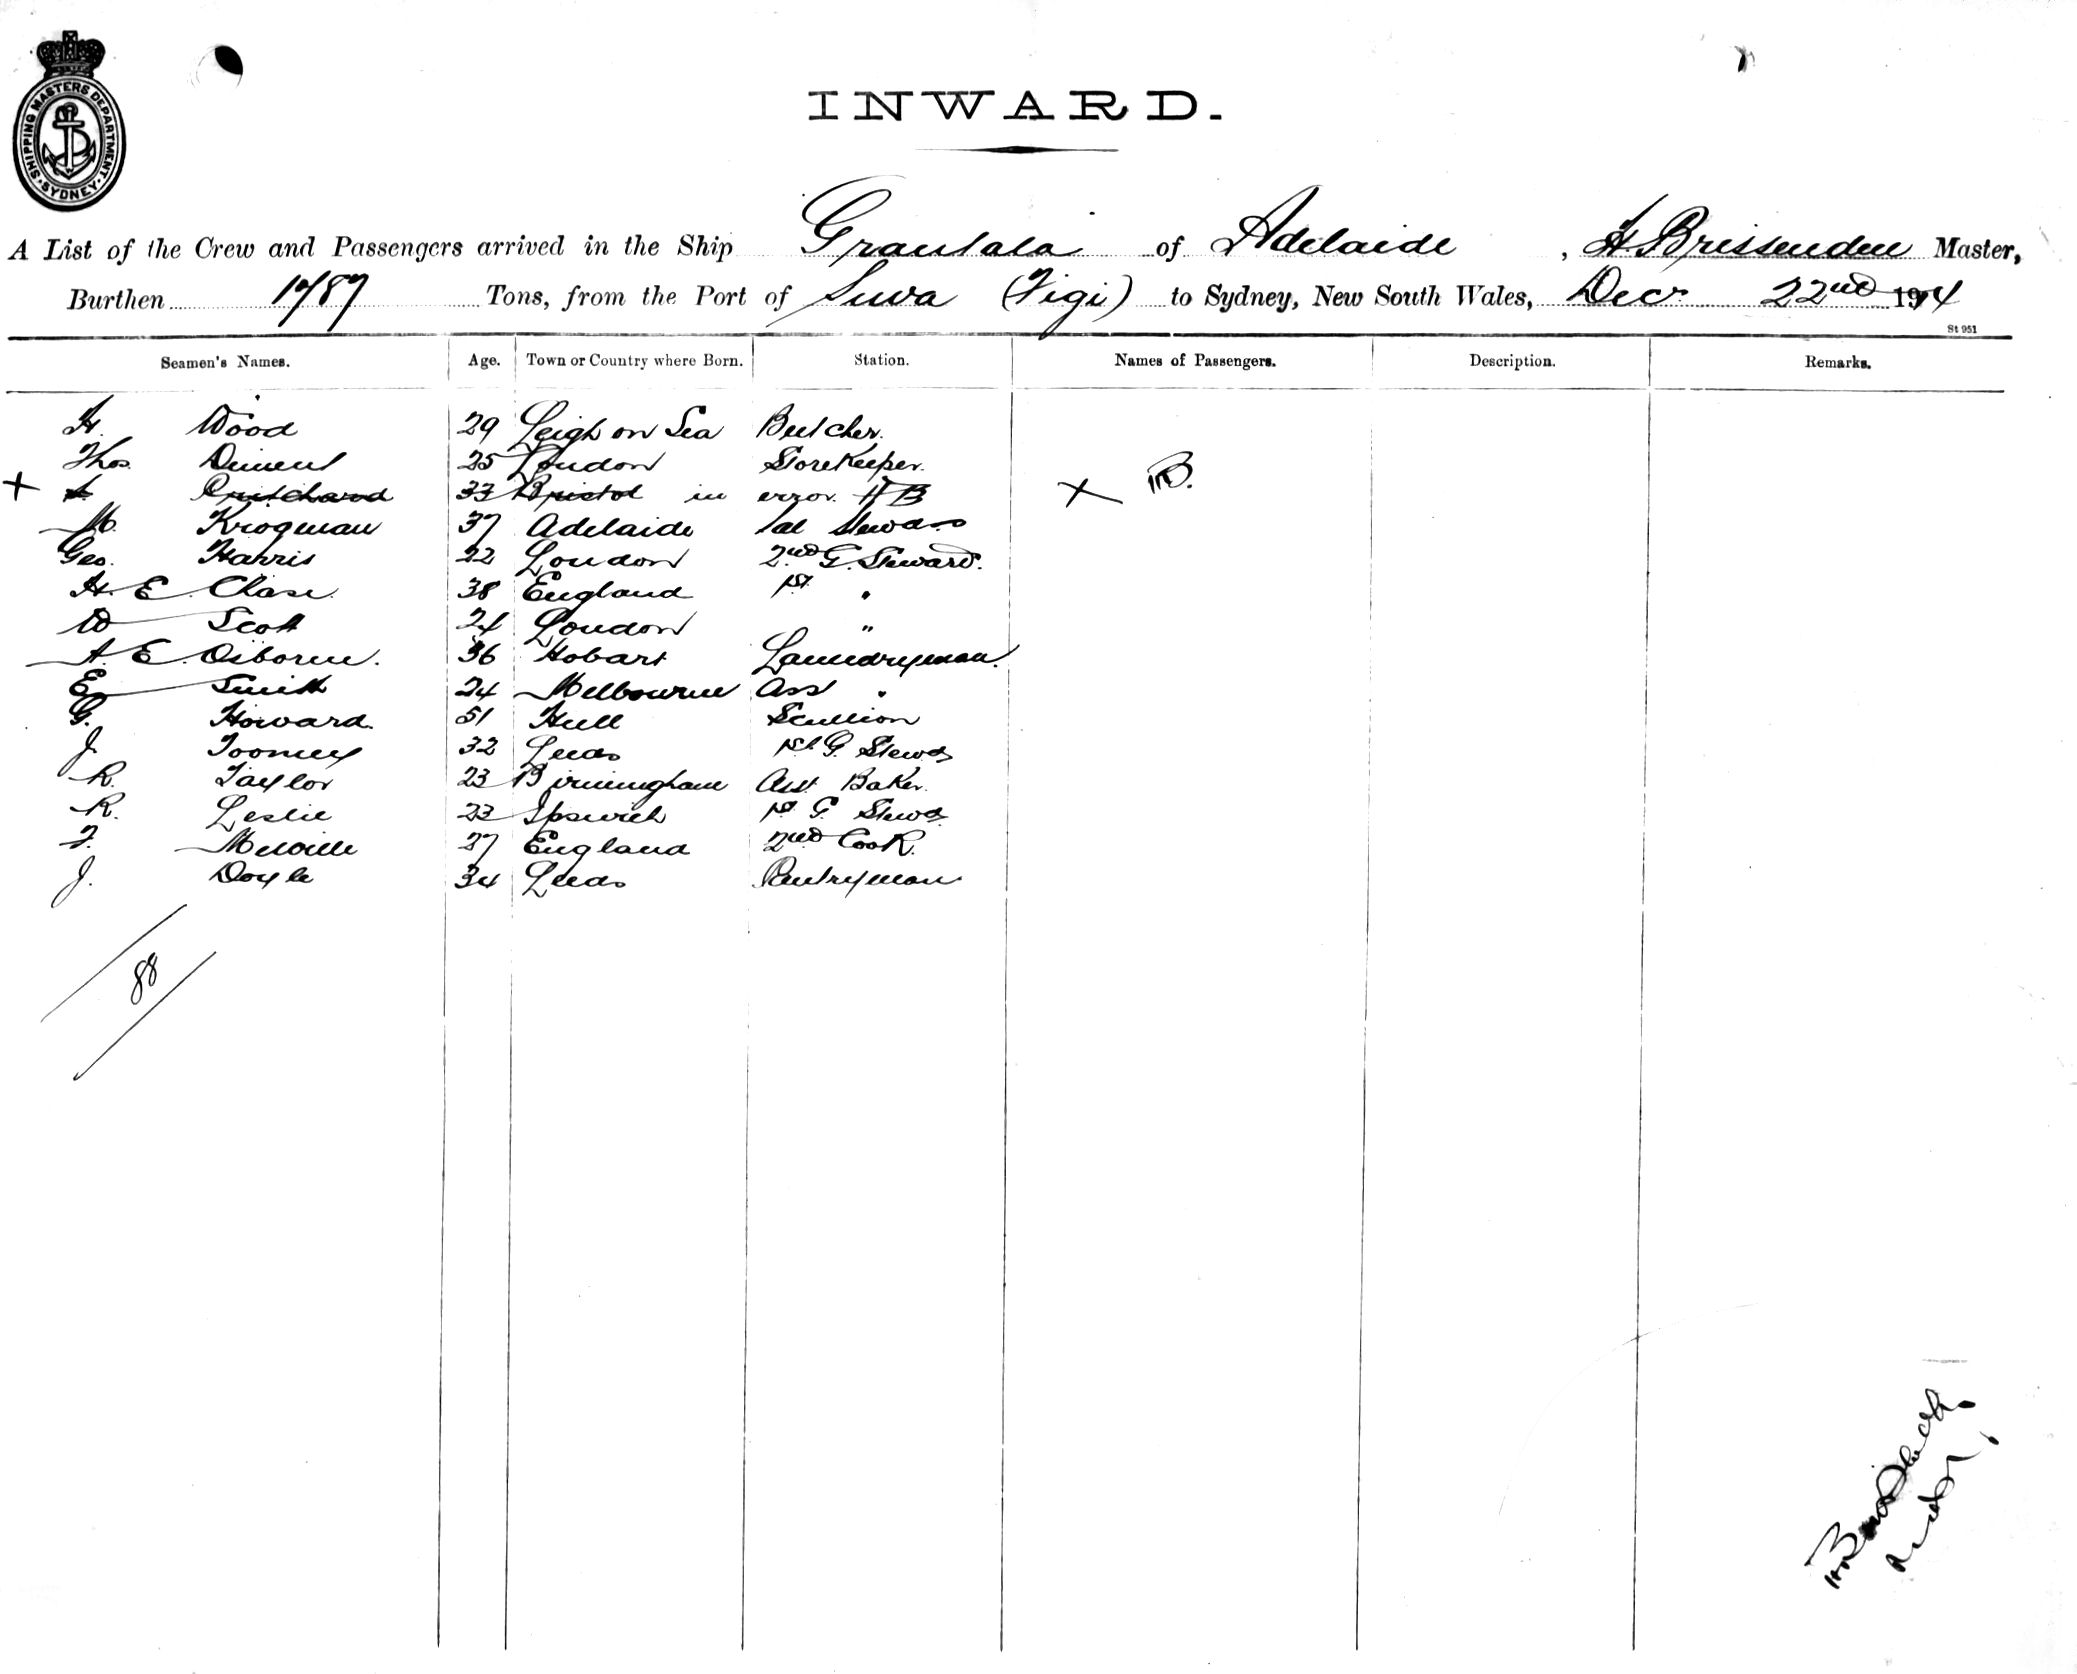 SHIPPING MASTERS DEPARTMENT · SYDNEY ·
INWARD.
A List of the Crew and Passengers arrived in the Ship Grantala of Adelaide, H Brissenden Master,
Burthen 1787 Tons, from the Port of Suva (Figi) to Sydney, New South Wales, Decr 22nd 1914
St 951
Seamen's Names. Age. Town or Country where Born. Station. Names of Passengers. Description. Remarks.
H. Wood 29 Leigh on Sea Butcher.
Thos. Diment 25 London Storekeeper.
+ Pritchard 33 Bristol in error HB X
M. Krogman 37 Adelaide Stewdss
Geo. Harris 22 London 2nd G. Steward.
H. E. Chase 38 England 1st "
W Scott 24 London "
A. E. Osborne. 36 Hobart Laundryman.
E Smith 24 Melbourne Asst "
G. Howard. 51 Hull Scullion
J. Toomey 32 Leeds 1st G. Stewd
R. Taylor 23 Birmingham Asst Baker.
R. Leslie 23 Ipswich 1st G. Stewd
F. Melville 27 England 2nd Cook.
J. Doyle 34 Leeds Pantryman
88